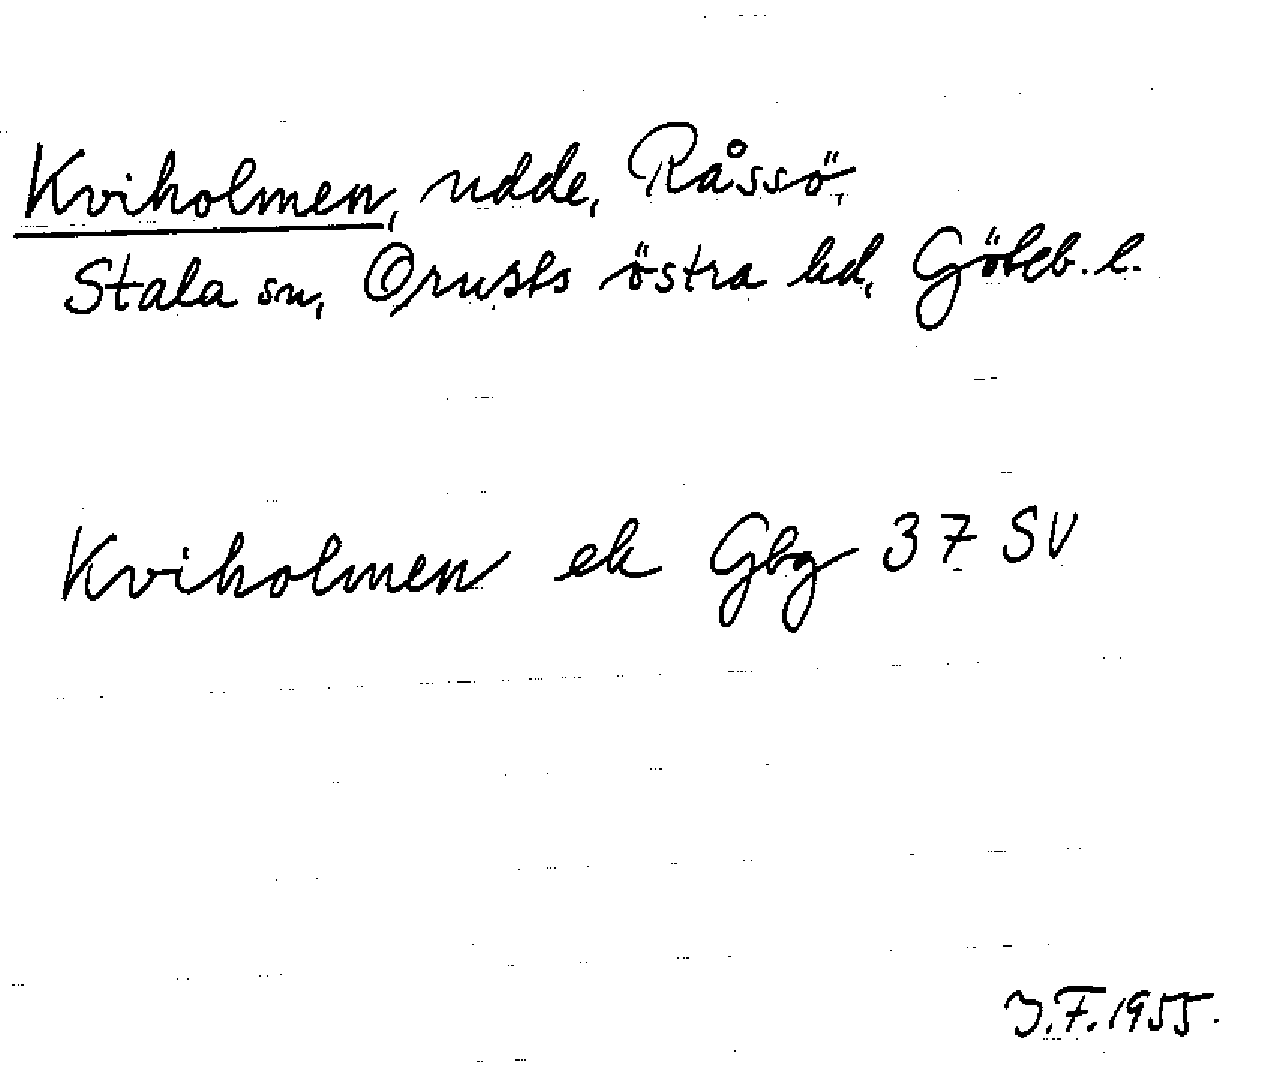 Kviholmen, udde, Råssö,
Stala sn, Orusts östra hd, Göteb. l.
Kviholmen ek Gbg 37 SV
J.F. 1955.